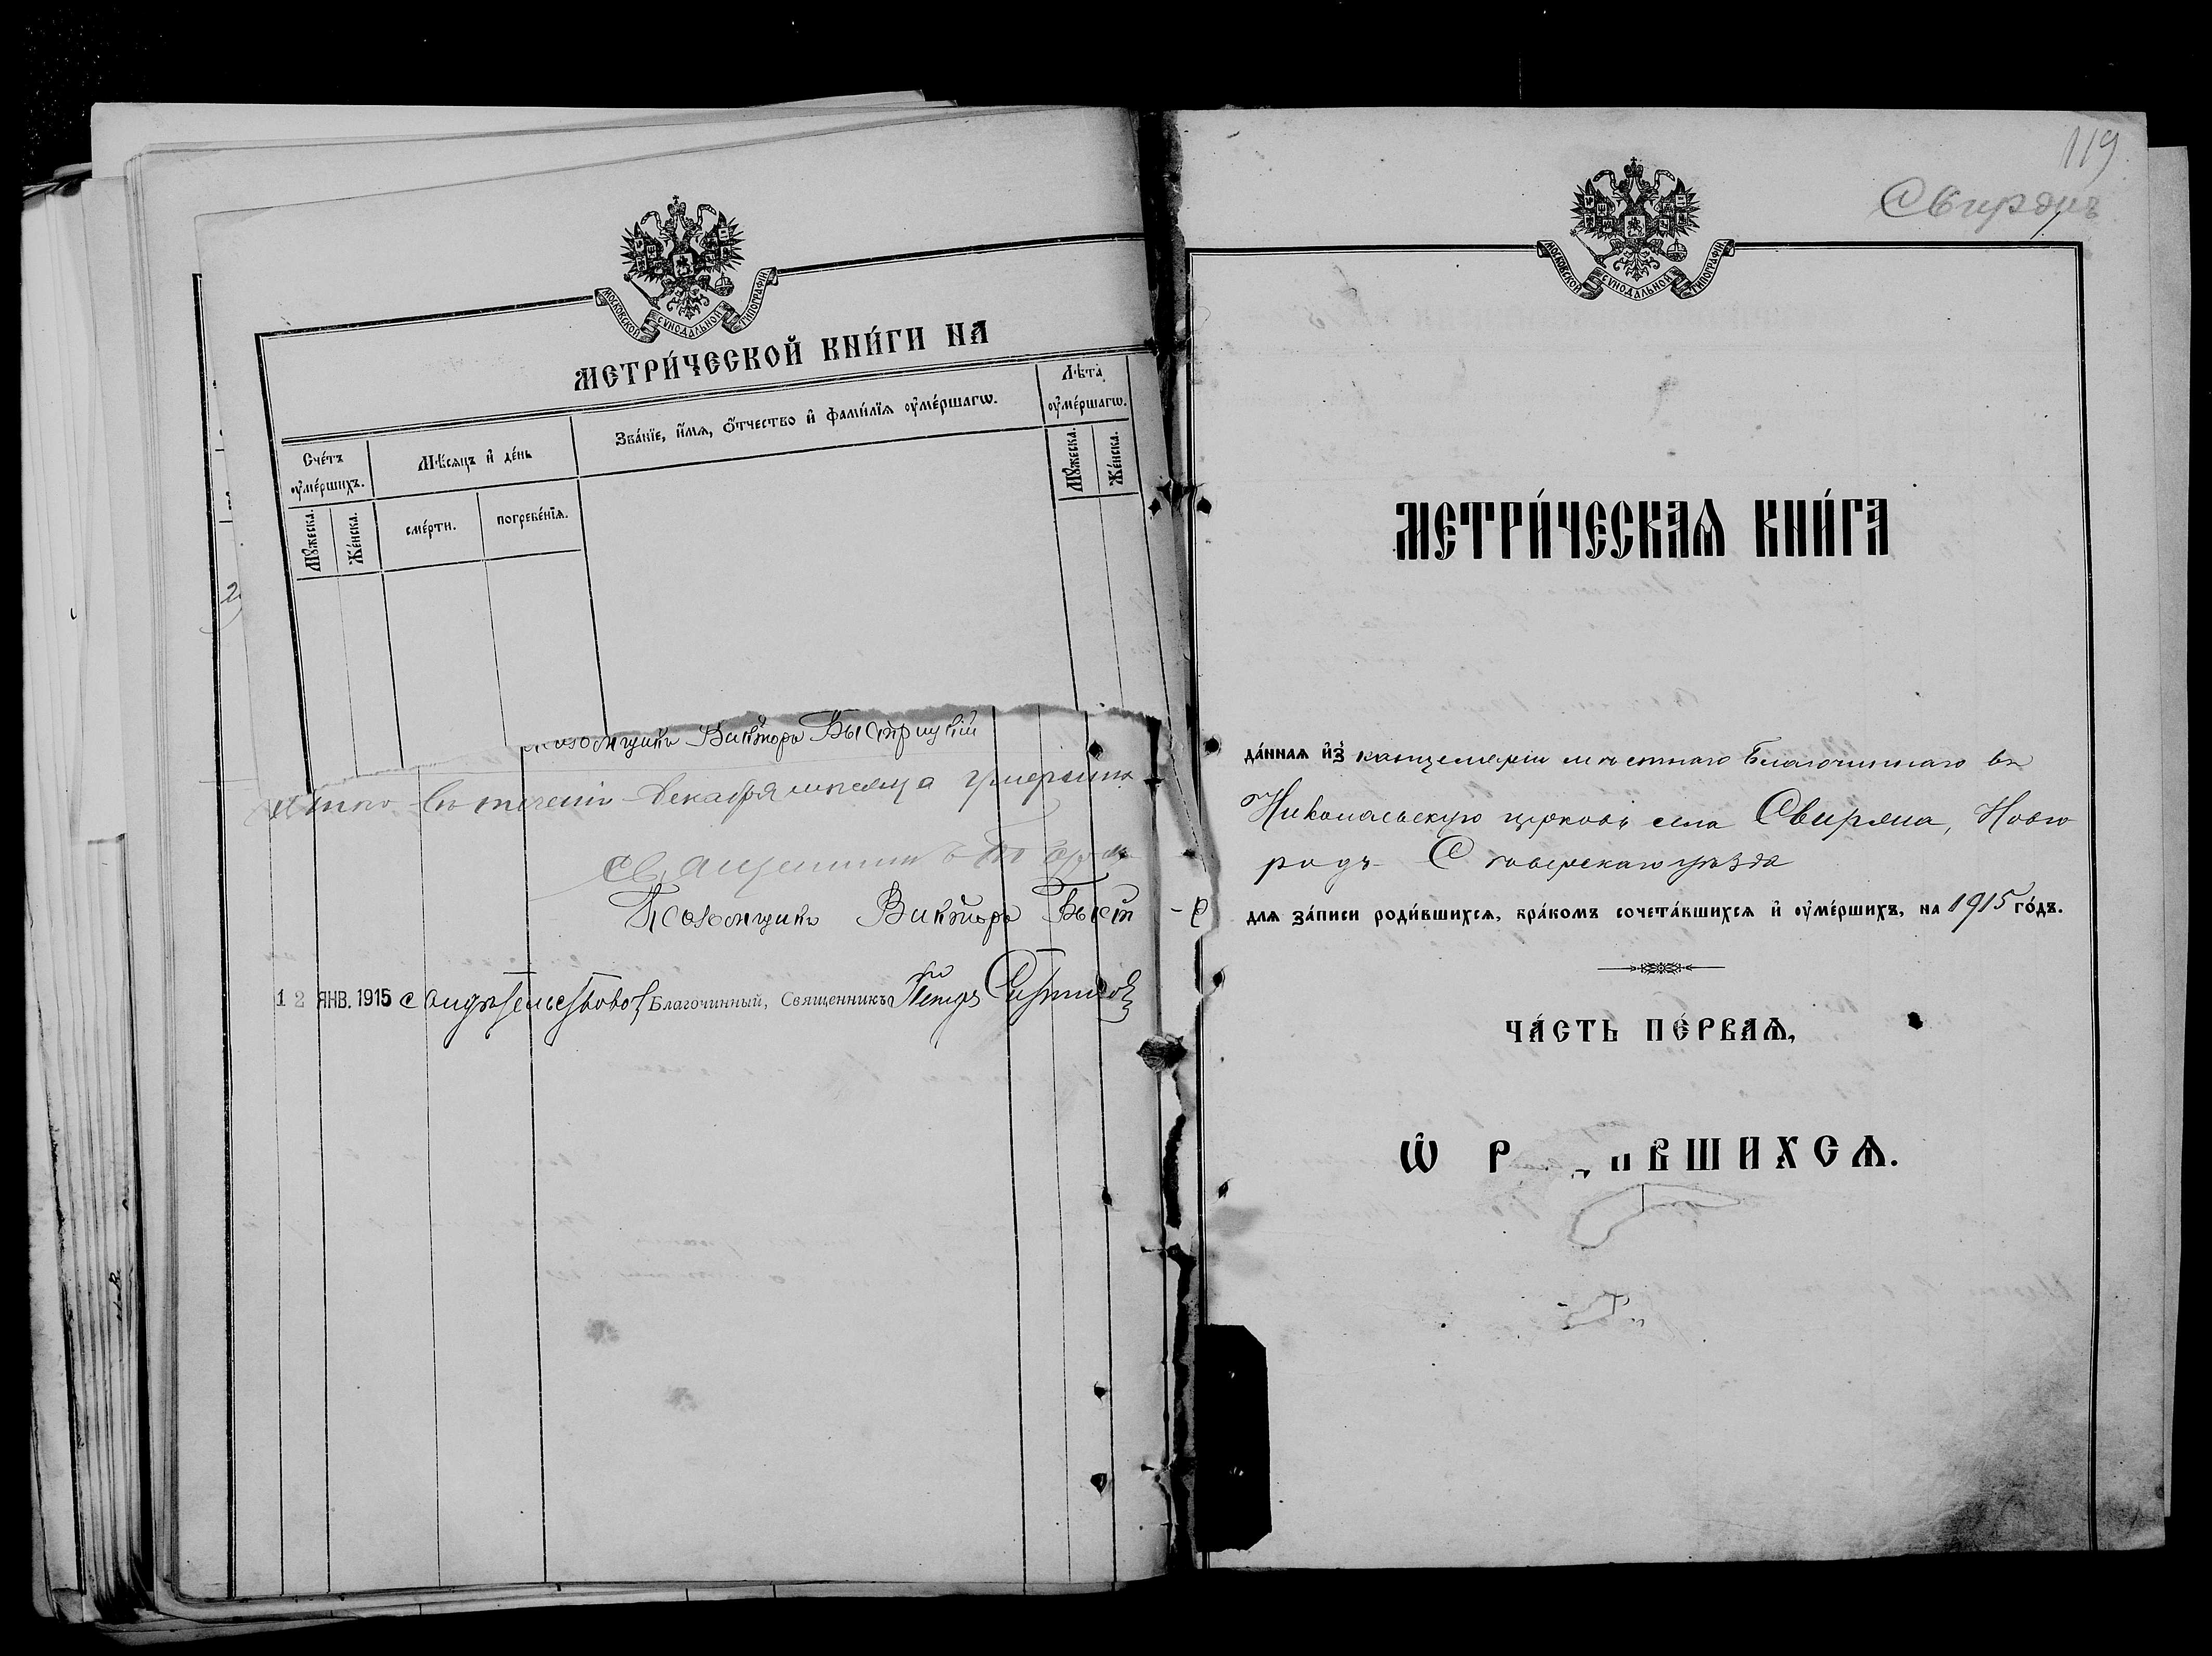 МОСКОВСКОЙ СѴНОДАЛЬНОЙ ТИПОГРАФІИ
МЕТРИ́ЧЕСКОЙ КНИ́ГИ НА
Сче́тъ ᲂу҆ме́ршихъ.
Мѣ́сяцъ и҆ де́нь
Зва́нїе, и҆́мѧ, ѻ҆́тчество и҆ фами́лїѧ ᲂу҆ме́ршагѡ.
Лѣ́та ᲂу҆ме́ршагѡ.
Мꙋ́жеска.
Же́нска.
сме́рти.
погребе́нїѧ.
Мꙋ́жеска.
Же́нска.
2
Викторъ Быстрицкій
Итого въ теченіи Декабря мѣсяца умершихъ
Священникъ
Псаломщикъ Викторъ Быст
12 ЯНВ. 1915 Благочинный, Священникъ Петръ
119
МОСКОВСКОЙ СѴНОДАЛЬНОЙ ТИПОГРАФІИ
МЕТРИ́ЧЕСКАѦ КНИ́ГА
да́ннаѧ и҆з̾ канцеляріи мѣстнаго Благочиннаго въ
Николаевскую церковь села Свирена, Новго
родъ Сѣверскаго уѣзда
длѧ за́писи роди́вшихсѧ, бра́комъ сочета́вшихсѧ и҆ ᲂу҆ме́ршихъ, на 1915 го́дъ.
ЧА́СТЬ ПЕ́РВАѦ,
Ѡ҆ Р ВШИХСѦ.